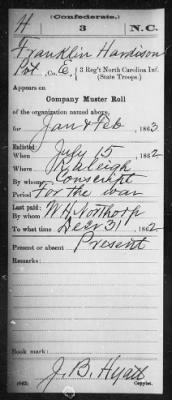 (Confederate.)
H 3 N.C.
Franklin Hardison
Pvt, Co. E, 3 Reg't North Carolina Inf.
(State Troops.)
Appears on
Company Muster Roll
of the organization named above,
for Jan & Feb, 1863
Enlisted:
When July 15, 1862
Where Raleigh
By whom Conscript
Period For the war
Last paid:
By whom W H Northorp
To what time Dec 31, 1862
Present or absent Present
Remarks:
Book mark:
J. B. Hyatt
(642) Copyist.